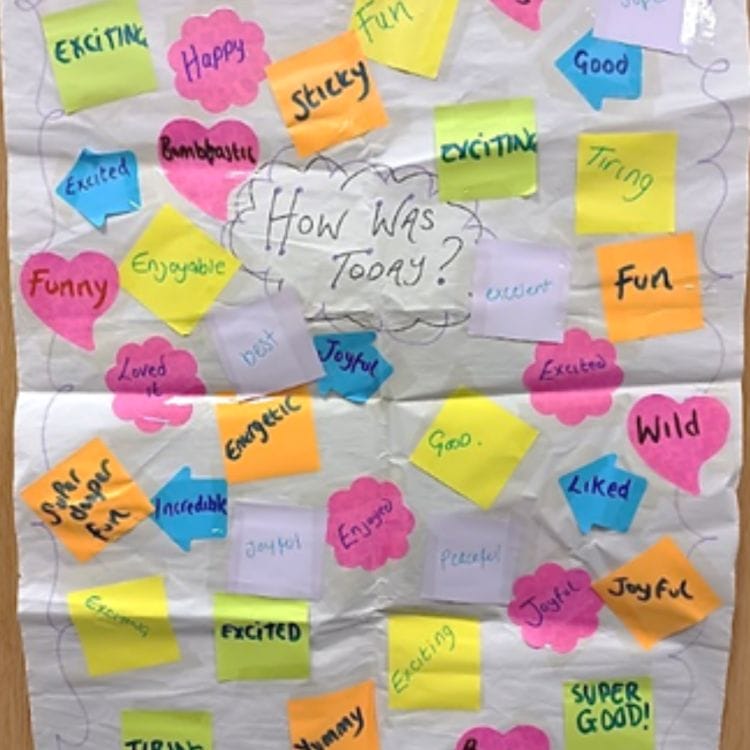 Fun
EXCITING
Happy
Sticky
Good
Bumbtastic
EXCITING
Tiring
Excited
HOW WAS
TODAY?
Funny
Enjoyable
excelent
Fun
best
Joyful
Loved
it
Excited
Energetic
Good.
Wild
Super
duper
fun
Incredible
Liked
Joyful
Enjoyed
Peaceful
Joyful
Joyful
EXCITED
Exciting
SUPER
GOOD!
TIRING
Yummy